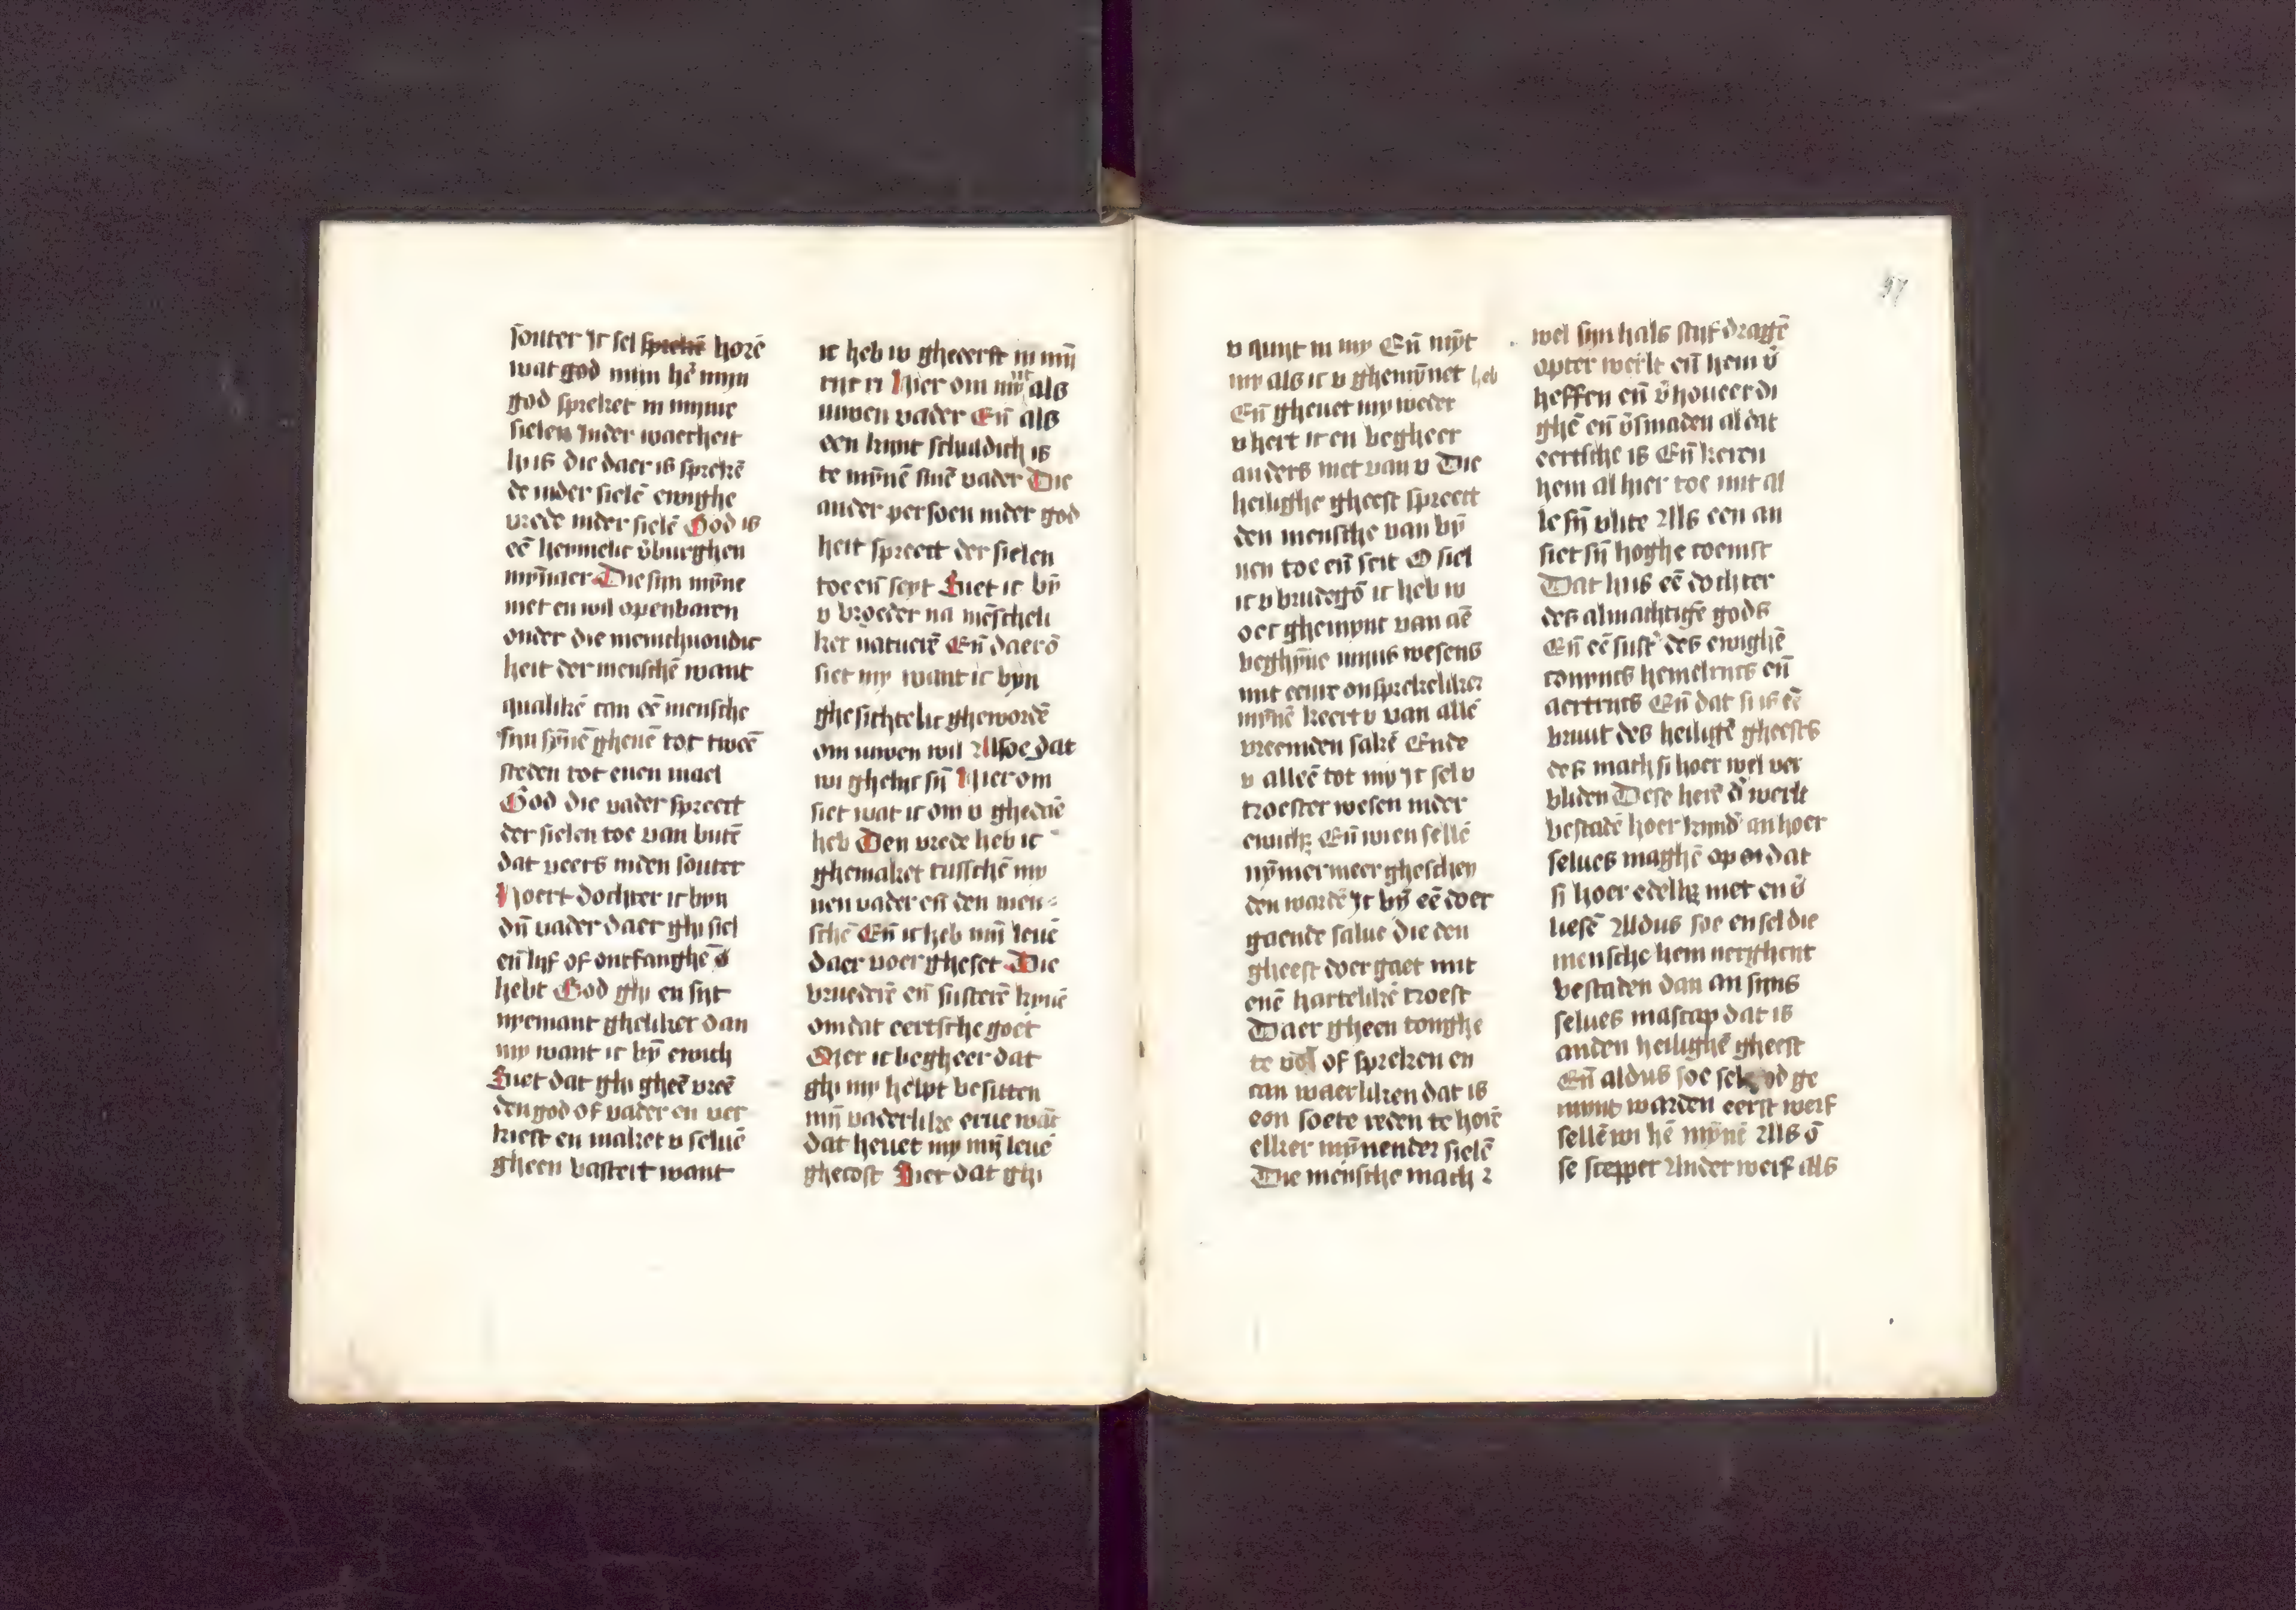 souter Ic sel sprekē horē
wat god mijn hē mijn
god spreket in mijnre
sielen Inder waerheit
hi is die daer is sprekē
de inder sielē ewighe
vrede inder sielē God is
eē heymelic v̄burghen
mȳnaer Die sijn mȳne
niet en wil openbaren
onder die menichuoudic
heit der menschē want
qualikē can eē mensche
sijn sȳnē gheuē tot tweē
steden tot enen mael
God die vader spreect
der sielen toe van butē
dat veers inden souter
Hoert dochter ic byn
dȳn vader daer ghi siel
en̄ lijf of ontfanghē
hebt God ghi en sijt
nyemant gheliker dan
my want ic bȳ ewich
Siet dat ghi gheē vreē
den god of vader en ver
kiest en maket v seluē
gheen bastert want
ic heb w gheeerst in mȳ
Hier om mȳt als
uwen vader En̄ als
een kynt schuldich is
te mȳnē sinē vader Die
ander persoen inder god
heit spreect der sielen
toe en̄ seyt Siet ic bȳ
v broeder na mēscheli
ker naturē En̄ daerō
siet my want ic byn
ghesichtelic ghewordē
om uwen wil Alsoe dat
wi ghelijc sȳ Hier om
siet wat ic om v ghedaē
heb Den vrede heb ic
ghemaket tusschē my
nen vader en̄ den men
schē En̄ ic heb mȳ leuē
daer voer gheset Die
bruederē en̄ susterē kyuē
om dat eertsche goet
Mer ic begheer dat
ghi my helpt besitten
mȳ vaderlike erue wāt
dat heuet my mȳ leuē
ghecost Siet dat ghi
57
v gunt in my En̄ mȳt
my als ic v ghemȳnet heb
En̄ gheuet my weder
v hert ic en begheer
anders niet van v Die
heilighe gheest spreect
den mensche van bȳ
nen toe en̄ seit O siel
ic v brudegō ic heb w
oec ghemynt van aē
beghȳne mijns wesens
mit eenre onsprekeliker
mȳnē keert v van allē
vreemden sakē Ende
v alleē tot my Ic sel v
troester wesen inder
ewich; En̄ wi en sellē
nȳmermeer gheschey
den wordē Ic bȳ eē doer
gaende salue die den
gheest doer gaet mit
enē hartelikē troest
Daer gheen tonghe
te vol of spreken en
can waerliken dat is
een soete reden te horē
elker mȳnender sielē
Die mensche mach
wel sijn hals stijf dragē
opter werlt en̄ hem v̄
heffen en̄ v̄houeerdi
ghē en̄ v̄smaden al dat
eertsche is En̄ keren
hem al hier toe mit al
le sȳ vlite Als een an
siet sȳ hoghe coemst
Dat hi is eē dochter
des almachtigē gods
En̄ eē sust' des ewighē
conyncs hemelrijcs en̄
aertrijcs En̄ dat si is eē
bruut des heiligē gheests
des mach si hoer wel ver
bliden Dese herē d' werlt
bestadē hoer kynd' an hoer
selues maghē op dat
si hoer edelh; niet en v̄
liesē Aldus soe en sel die
mensche hem nerghent
bestaden dan an sijns
selues mascap dat is
anden heilighē gheest
En̄ aldus soe sel god ge
mynt warden eerst werf
sellē wi hē mȳnē Als ō
se scepper Ander werf als